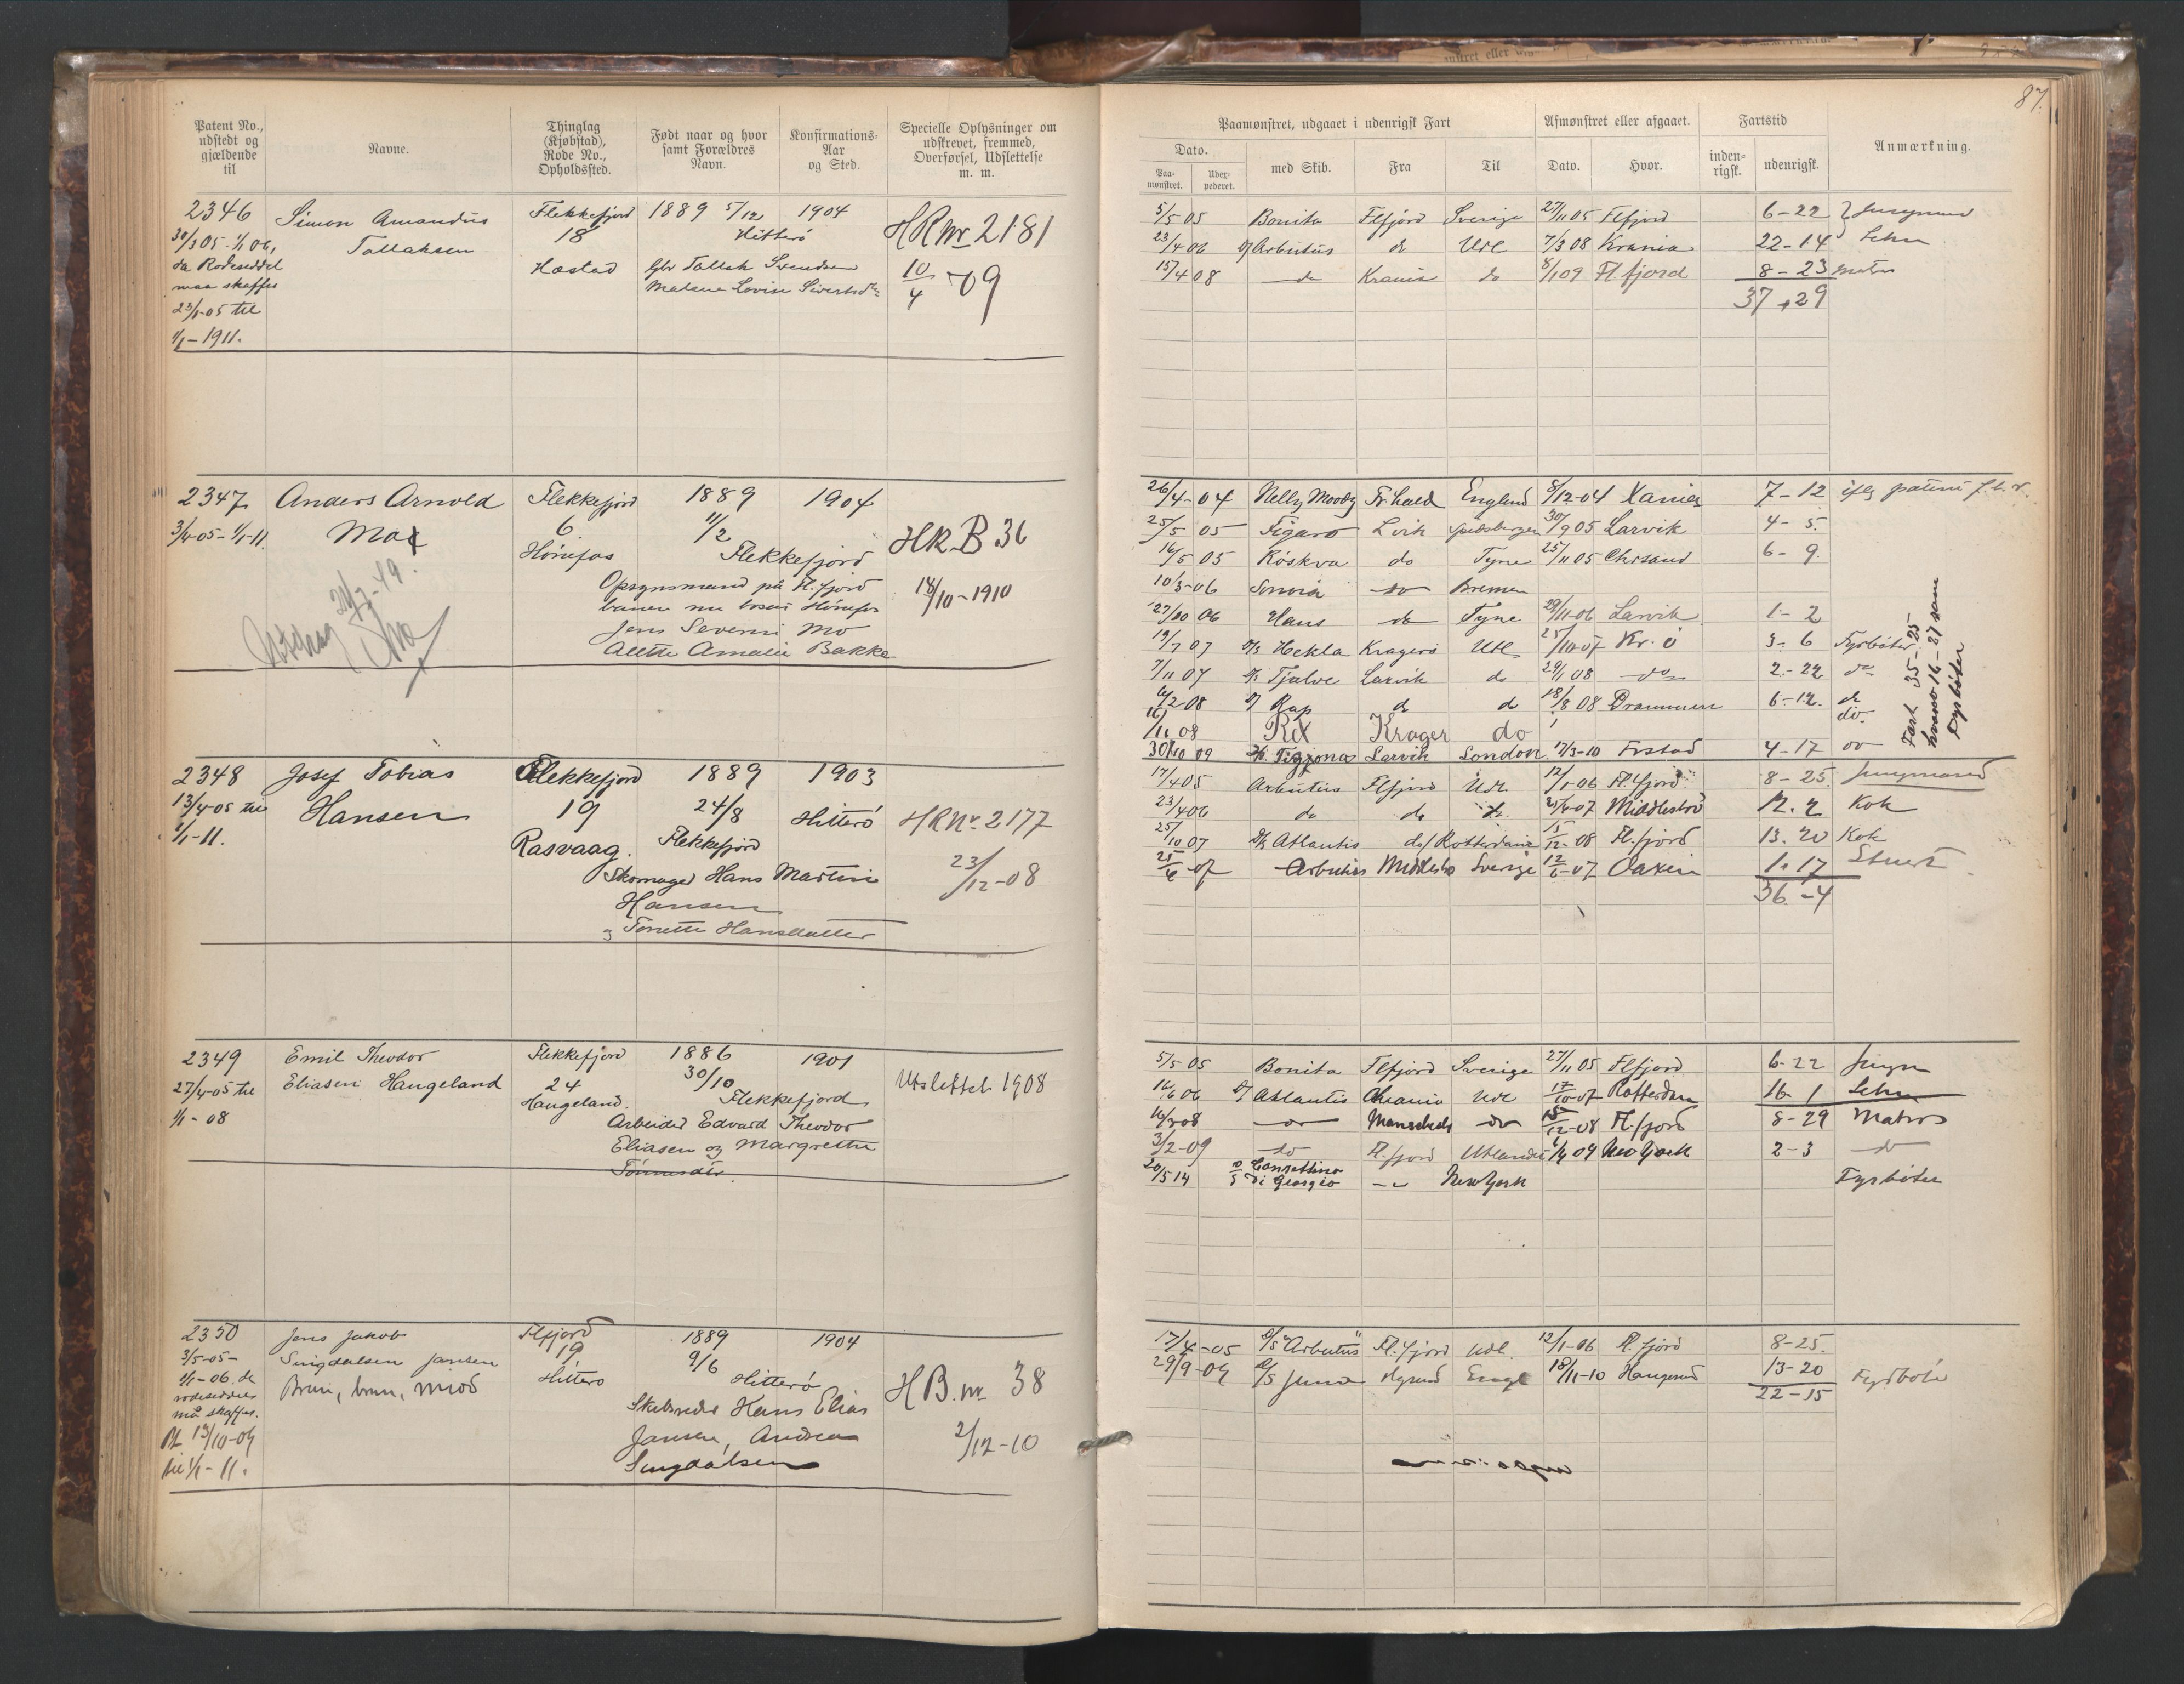 87.
Patent No., udstedt og gjældende til
Navne.
Thinglag (Kjøbstad), Rode No., Opholdssted.
Født naar og hvor samt Forældres Navn.
Konfirmations-Aar og Sted.
Specielle Oplysninger om udskrevet, fremmed, Overførsel, Udslettelse m. m.
Paamønstret, udgaaet i udenrigsk Fart
Afmønstret eller afgaaet.
Fartstid
Anmærkning.
Dato.
Paa-mønstret.
Udex-pederet.
med Skib.
Fra
Til
Dato.
Hvor.
inden-rigsk.
udenrigsk.
2346 Simon Amandus Flekkefjord 1889 5/12 1904 HRnr 2181
30/3 05 - 1/1 06, Tallaksen 18 Hitterø
da Rodeseddel Hæstad Gbr Tallak Svendsen 10/4 - 09
maa skaffes Malene Lovise Sivertsdtr
23/1-05 til
1/1-1911.
5/5 05 Bonita Flfjord Sverige 27/11 05 Flfjord 6-22 Jungmand
23/4 06 Arbutus do Udl 7/3 08 Krania 22-14
15/4 08 do Krania do 8/1 09 Flfjord 8-23 matros
37-29
2347 Anders Arnold Flekkefjord 1889 1904
3/4-05-1/1-11. Mo 6 11/2 HR.B 36
Hønefos Flekkefjord
Opsynsmand på Fl.fjord 18/10-1910
banen nu bosat Hønefos
Jens Severin Mo
Alette Amalie Bakke
26/4-04 Nelly Moody Fr.hald England 8/12-04 Xania 7-12 iflg patent
25/5 05 Figaro Lvik Spidsbergen 30/9 05 Larvik 4-5
16/5 05 Røskva do Tyne 25/11 05 Chrsand 6-9.
10/3-06 do Bremen
27/10 06 Hans do Tyne 29/11-06 Larvik 1-2
19/7 07 Hekla Kragerø Udl 25/10-07 Kr.ø 3-6 Fyrbøter
7/11 07 Tjalve Larvik do 29/1 08 do 2-22 do
6/2-08 Rap do do 18/8 08 Drammen 6-12. do
16/11 08 Rex Krager do do.
30/10 09 Larvik London 17/3-10 4-17 do
Fart 35-25
hvorav 16-27 som
Fyrbøter
2348 Josef Tobias Flekkefjord 1889 1903
13/4-05 til Hansen 19 24/8 Hitterø HRNr. 2177
1/1-11. Rasvaag. Flekkefjord
Skomager Hans Martin 23/12-08
Hansen
og Tonette Hansdatter
17/4 05 Arbutus Flfjord Udl. 12/1-06 Fl.fjord 8-25. Jungmand
23/4 06 do do do 25/4-07 Middlesbro 12.2 Kok
25/10 07 Atlantis do/Rotterdam 15/12-08 Fl.fjord 13.20 Kok
25/6-07 Arbutus Middlesbro Sverige 12/-07 1.17 Stuert
36-4
2349 Emil Theodor Flekkefjord 1886 1901
27/4-05 til Eliasen Haugeland 24 30/10 Utslettet 1908
1/1-08 Haugeland. Flekkefjord
Arbeider Edvard Theodor
Eliasen og Margrethe
Tønnesdtr.
5/5-05 Bonita Flfjord Sverige 27/11 05 Flfjord 6-22 Jungm
16/6 06 Atlantis Udl 17/10-07 Rotterdam 16-1
16/3-08 do do 15/12-08 Fl.fjord 8-29 Matros
3/2-09 do Fl.fjord Utlandet 09 New York 2-3 do
20/5 14 di Georgio New York Fyrbøter
2350 Jens Jakob Flfjord 1889 1904
3/5-05- Singdalsen Jansen 19 9/6
1/1-06. da Brun, brun, mid Hitterø Hitterø H B. nr 38
rodeseddel Skibsreder Hans Elias
må skaffes. Jansen, Andrea 2/12-10
Pt. 13/10-09 Singdalsen
til 1/1-11.
17/4-05 S/S "Arbutus" Fl.fjord Udl. 12/1-06 Fl.fjord 8-25.
29/9-09 S/S Juno Engl 18/11-10 Haugesund 13-20 Fyrbøter
22-15